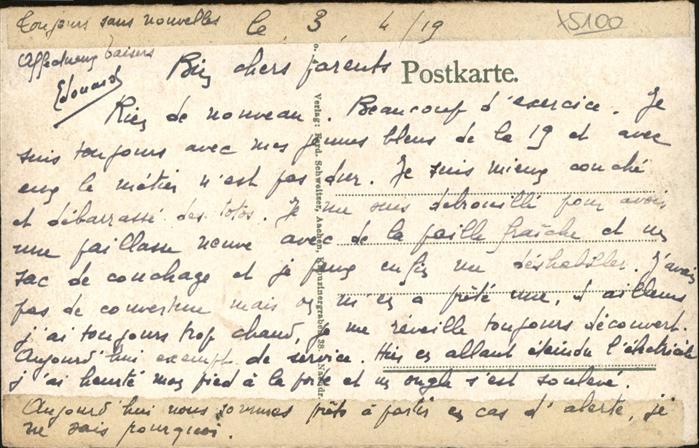 Toujours sans nouvelles
le 3 4/19
X5100
Affectueux baisers
Edouard
Bien chers parents
Postkarte.
Rien de nouveau. Beaucoup d'exercice. Je
suis toujours avec mes jeunes bleus de la 19 et avec
eux le métier n'est pas dur. Je suis mieux couché
et débarrassé des totos. Je me suis débrouillé pour avoir
une paillasse neuve avec de la paille fraîche et un
sac de couchage et je peux enfin me déshabiller. J'avais
pas de couverture mais on m'en a prêté une, d'ailleurs
j'ai toujours trop chaud, je me réveille toujours découvert.
Aujourd'hui exempt de service. Hier en allant éteindre l'électricité
j'ai heurté mon pied à la porte et un ongle s'est soulevé.
Aujourd'hui nous sommes prêts à partir en cas d'alerte, je
ne sais pourquoi.
Verlag: Ferd. Schweitzer, Aachen, Kapuzinergraben 38.